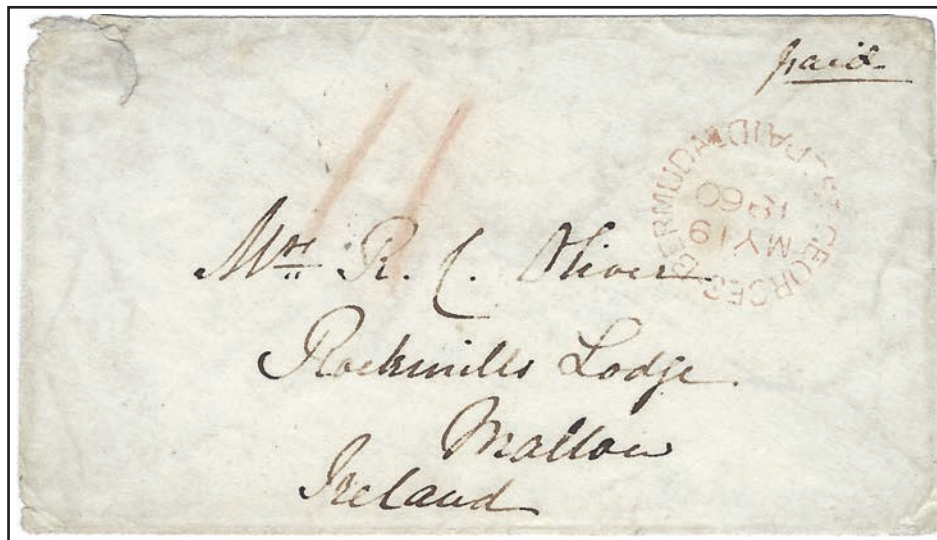 paid
PAID ST GEORGES BERMUDA
MY 19
1860
11
Mrs R. C. Oliver
Rockmills Lodge
Mallow
Ireland